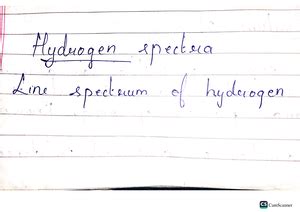 Hydrogen spectra
Line spectrum of hydrogen
CS CamScanner